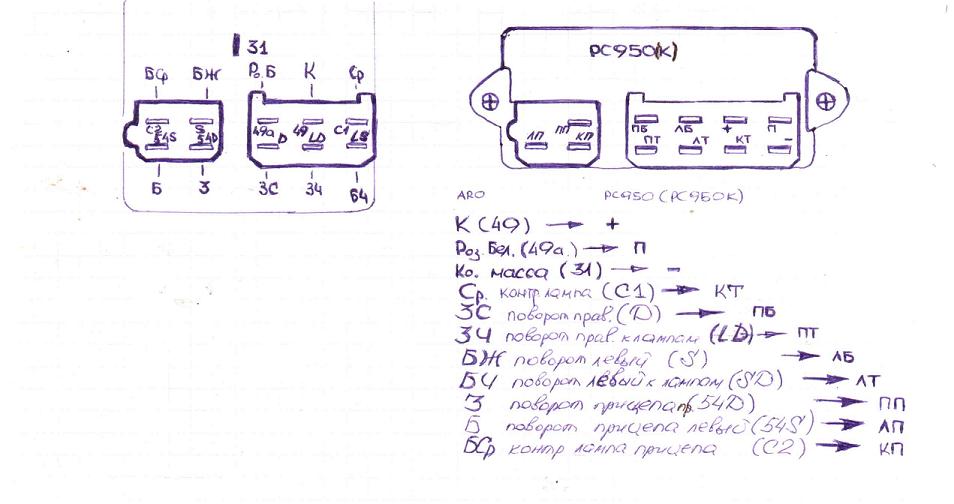 31
БСр БЖ Роз.Б К Ср
С2 54S S 54D 49а D 49 LD С1 LS
Б З ЗС ЗЧ БЧ
РС950(К)
ЛП ПП КП
ПБ ЛБ + П
ПТ ЛТ КТ -
ARO РС950 (РС950К)
К (49) → +
Роз. Бел. (49а.) → П
Ко. масса (31) → -
Ср. контр лампа (С1) → КТ
ЗС поворот прав. (D) → ПБ
ЗЧ поворот прав. к лампам (LD) → ПТ
БЖ поворот левый (S) → ЛБ
БЧ поворот левый к лампам (SD) → ЛТ
З поворот прицепа пр. (54D) → ПП
Б поворот прицепа левый (54S) → ЛП
БСр контр лампа прицепа (С2) → КП